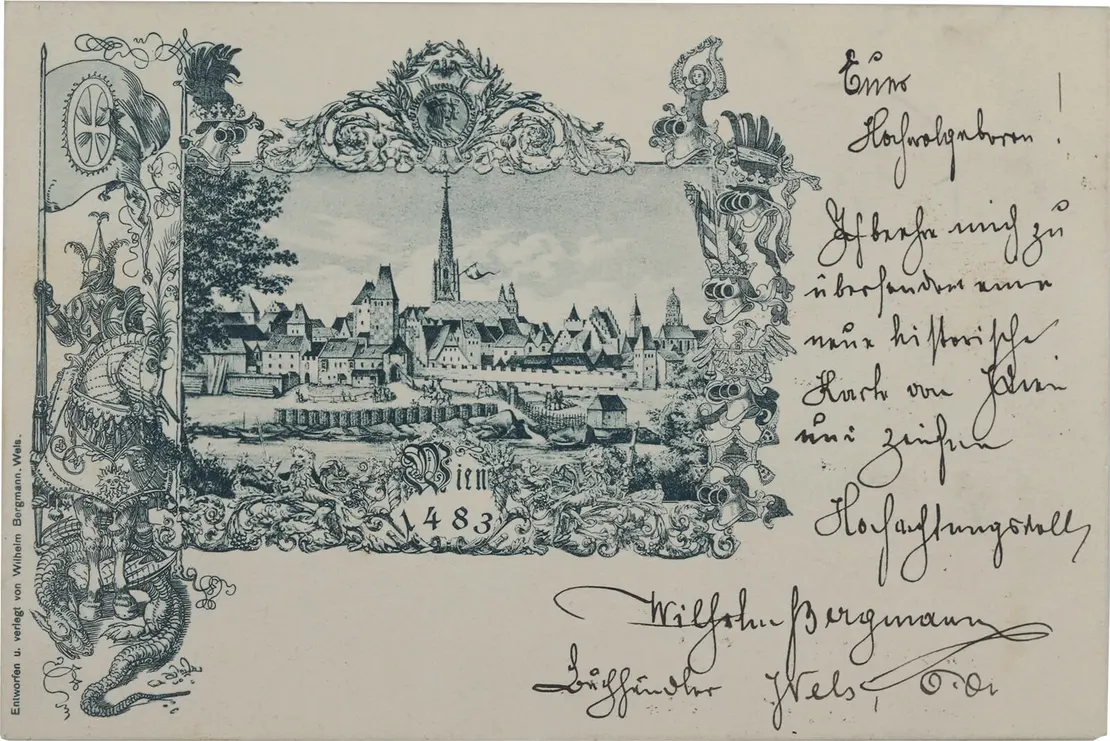 Entworfen u. verlegt von Wilhelm Bergmann, Wels.
Wien
1483
Euer
Hochwolgeboren!
Ich beehre mich zu
übersenden eine
neue historische
Karte von Wien
und zeichne
Hochachtungsvoll
Wilhelm Bergmann
Buchhändler Wels, O.Ö.